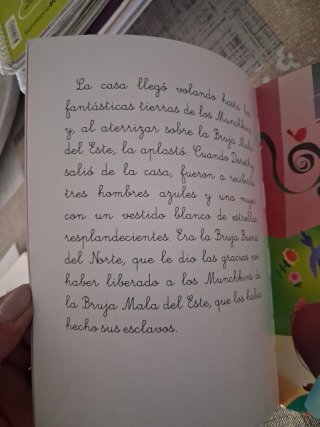 La casa llegó volando hasta las
fantásticas tierras de los Munchkins
y, al aterrizar sobre la Bruja Mala
del Este, la aplastó. Cuando Dorothy
salió de la casa, fueron a recibirla
tres hombres azules y una mujer
con un vestido blanco de estrellas
resplandecientes. Era la Bruja Buena
del Norte, que le dio las gracias por
haber liberado a los Munchkins de
la Bruja Mala del Este, que los había
hecho sus esclavos.